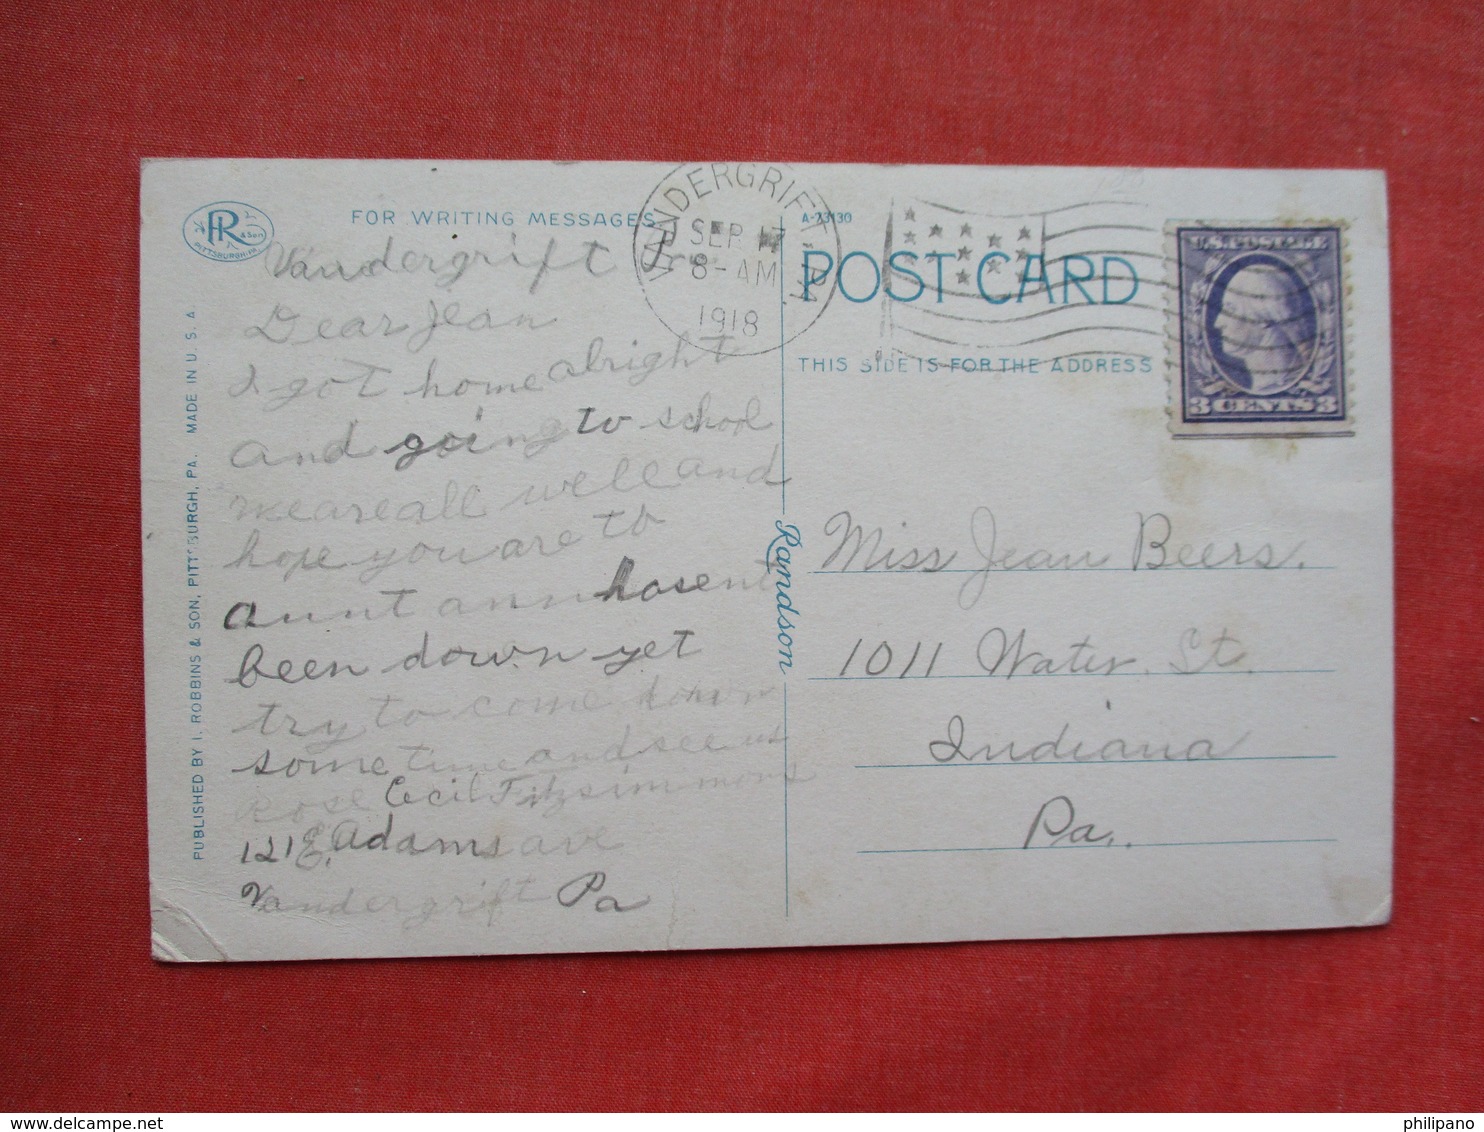 HR
& Son
PITTSBURGH PA.
FOR WRITING MESSAGES
PUBLISHED BY I. ROBBINS & SON, PITTSBURGH, PA. MADE IN U.S.A.
Vandergrift
Dear Jean
I got home alright
and going to school
we are all well and
hope you are to
aunt ann hasent
been down yet
try to come down
some time and see us
Rose Cecil Fitzsimmons
121 E. Adams ave
Vandergrift Pa
VANDERGRIFT, PA.
SEP 17
8-AM
1918
A-73130
POST CARD
THIS SIDE IS FOR THE ADDRESS
U.S. POSTAGE
3 CENTS 3
Randson
Miss Jean Beers.
1011 Water St.
Indiana
Pa.
delcampe.net
philipano